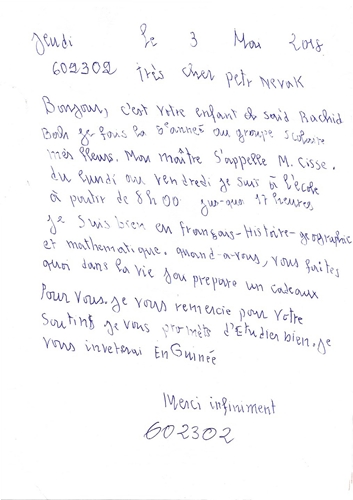 Jeudi le 3 Mai 2018
602302 très cher petr Nevak
Bonjour, c'est votre enfant el said Rachid
Bah je fais la 3e année au groupe scolaire
mes fleurs. Mon maître s'appelle M. Cisse.
du lundi au vendredi je suis à l'école
à partir de 8h00 jus-que 17 heures
je suis bien en français-Histoire-geographie
et mathematique. quand-a-vous, vous faites
quoi dans la vie j'au prepare un cadeaux
Pour vous. je vous remercie pour votre
soutins je vous promets d'Etudier bien. je
vous inveterai En Guinée
Merci infiniment
602302